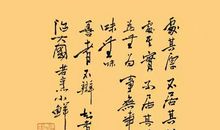 處其厚不居其
處其實不居其
為無為事無事
味無味
善者不辯
治大國若烹小鮮